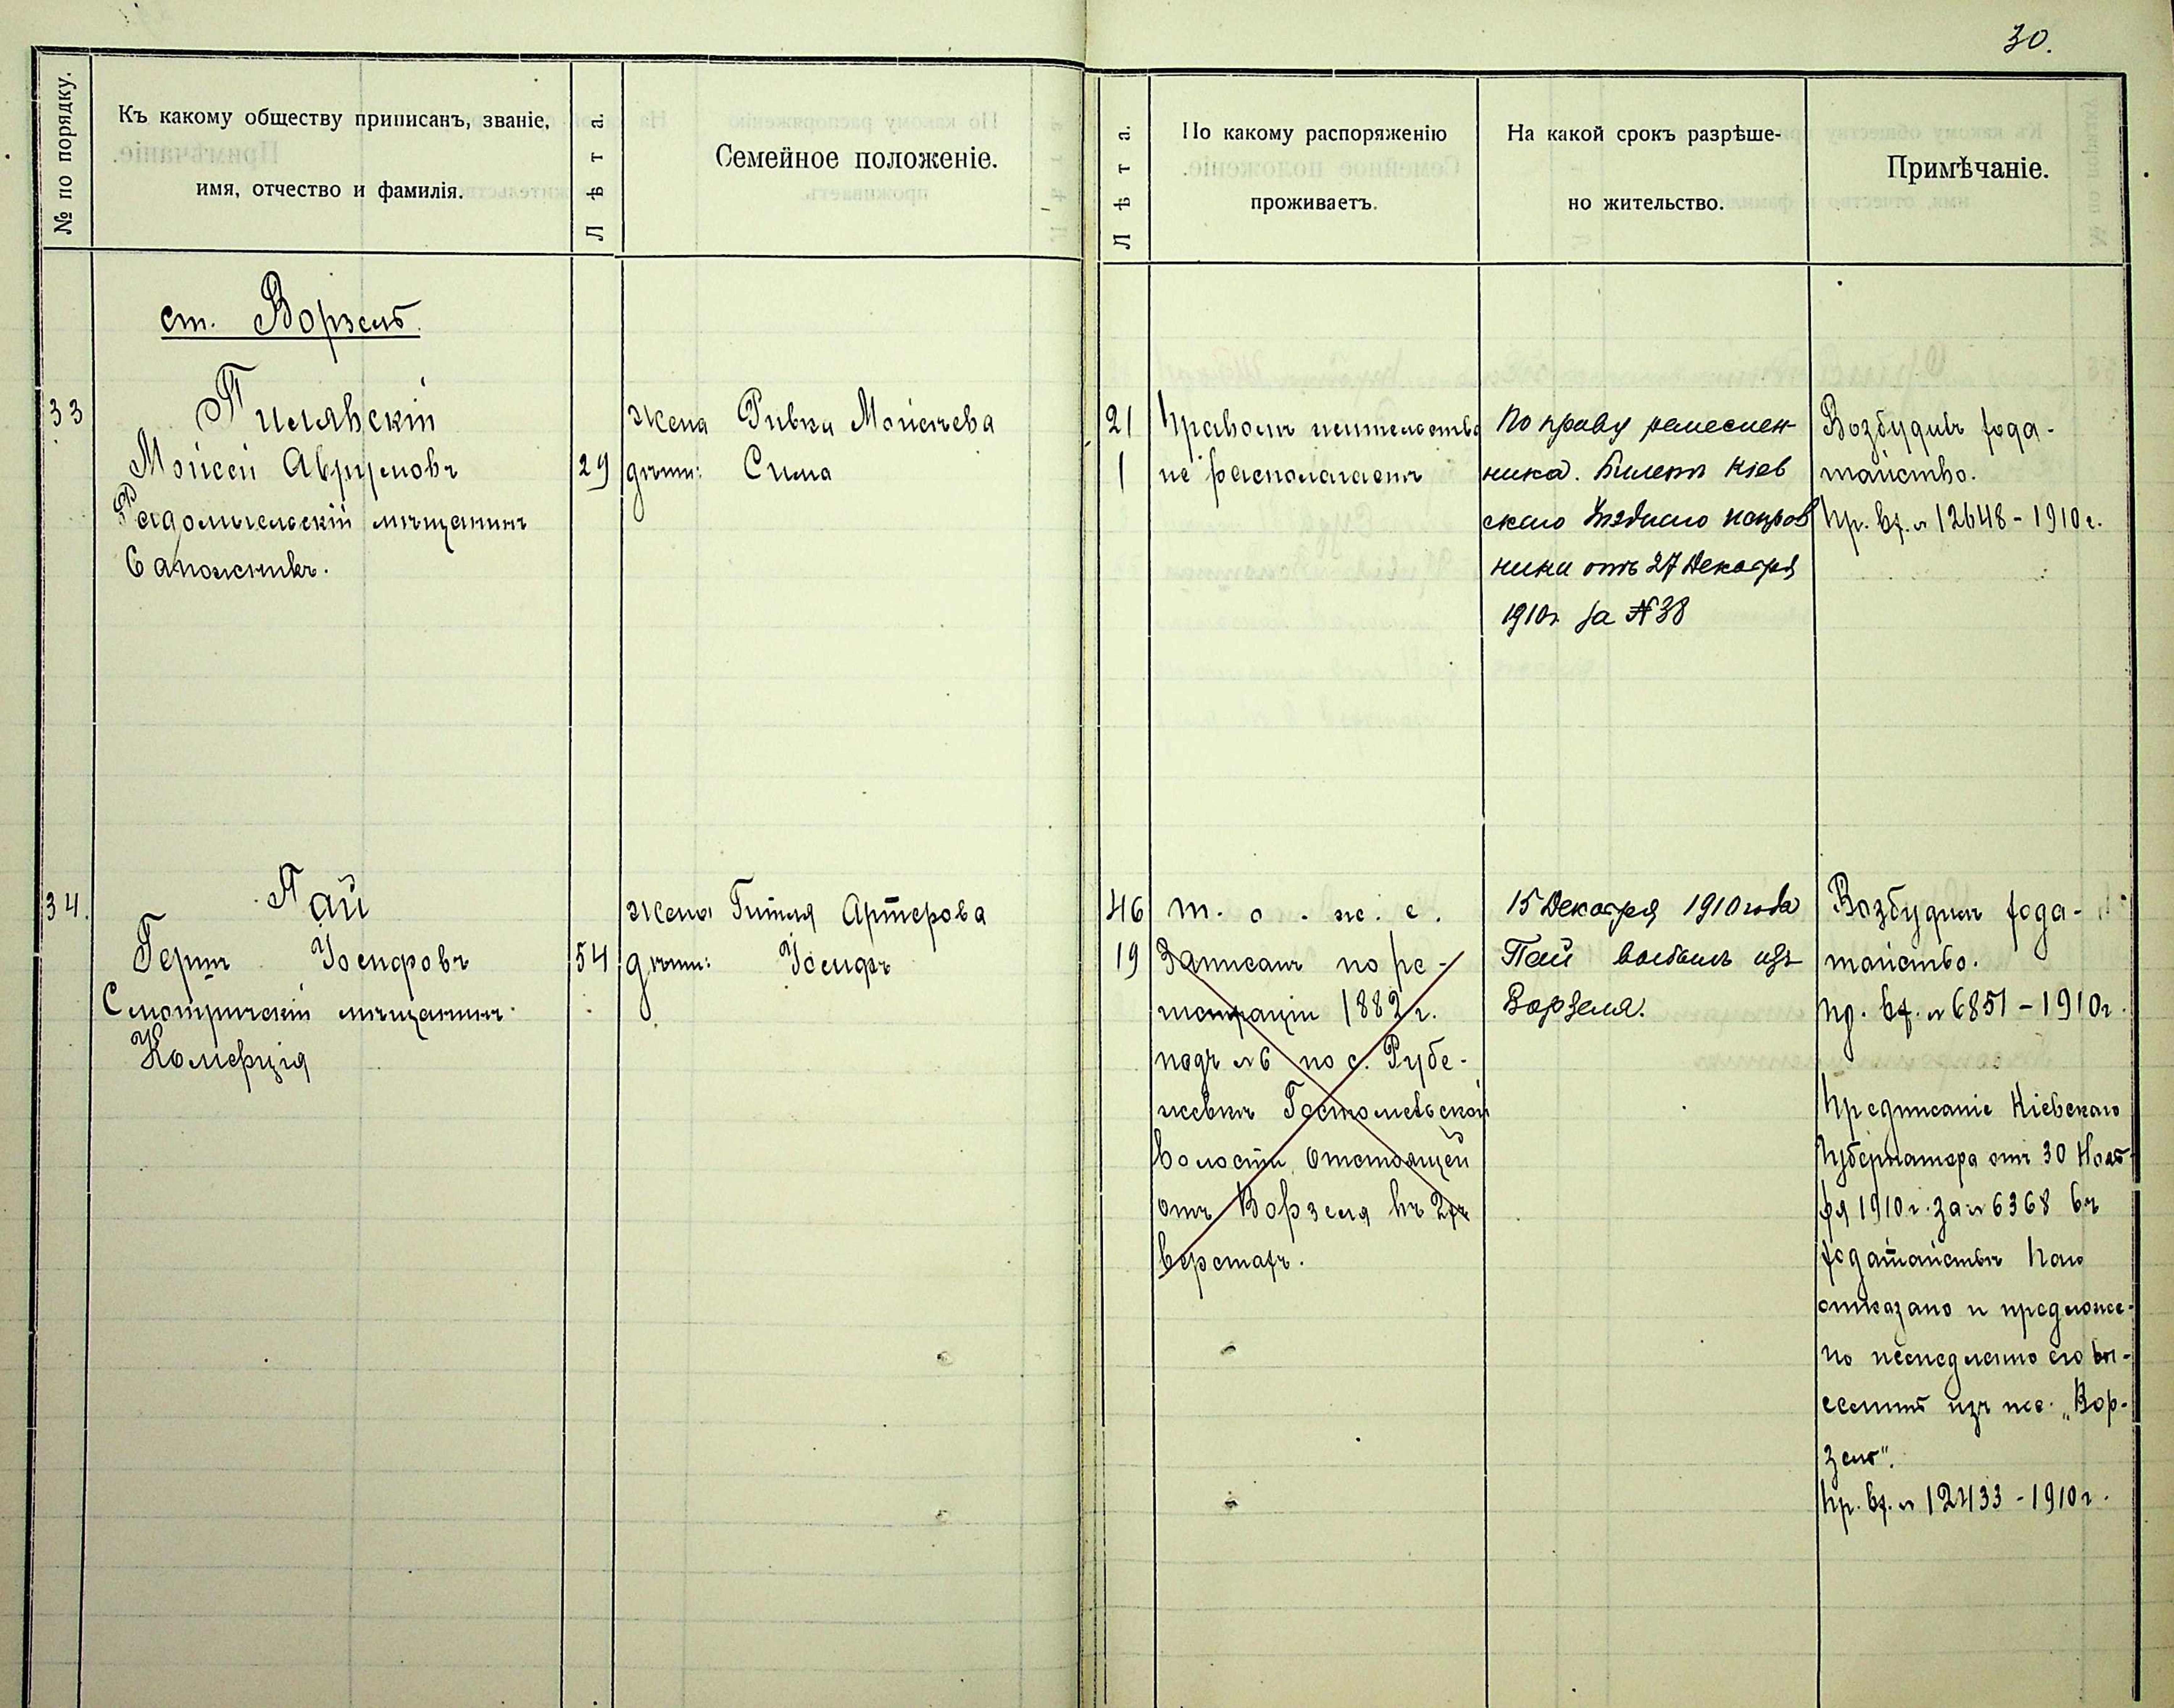 30.
№ по порядку.
Къ какому обществу приписанъ, званіе,
имя, отчество и фамилія.
Лѣта.
Семейное положеніе.
Лѣта.
По какому распоряженію
проживаетъ.
На какой срокъ разрѣше-
но жительство.
Примѣчаніе.
ст. Ворзель.
33
Пилявскій
Мойсей Аврумовъ
Радомысльскій мѣщанинъ
Сапожникъ.
29
жена Ривка Мойсѣева
дѣти: Сима
21
1
Правомъ жительства
не располагаетъ
По праву ремеслен
ника. Билетъ Кіев
скаго Уѣзднаго исправ
ника отъ 27 Декабря
1910г. за № 38
Возбудивъ хода-
тайство.
Пр. вх. № 12648-1910г.
34.
Пай
Герш Іосифовъ
Смотричскій мѣщанинъ
Комерція
54
жена Гитля Артерова
дѣти: Іосифъ
46
19
т. о. ж. е.
Записанъ по ре-
гистраціи 1882 г.
подъ № 6 по с. Рубе-
жевкѣ Гостомельской
волости, отстоящей
отъ Ворзеля въ 2хъ
верстахъ.
15 Декабря 1910 года
Пай выбылъ изъ
Ворзеля.
Возбудилъ хода-
тайство.
Пр. вх. № 6851-1910г.
Предписаніе Кіевскаго
Губернатора отъ 30 Нояб-
ря 1910 г. за № 6368 въ
ходатайствѣ Паю
отказано и предложе-
но немедленно его вы-
селить изъ пос. „Вор-
зель".
Пр. вх. № 12433-1910г.